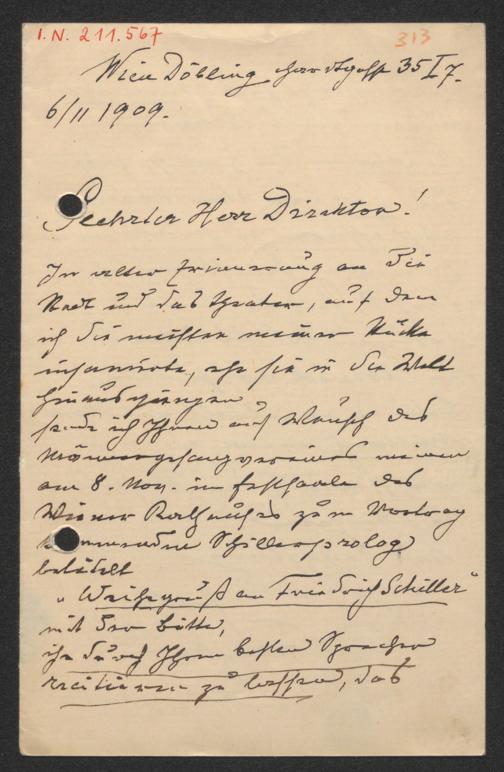 I.N. 211.567
313
Wien Döbling 35 I 7.
6/11 1909.
Geehrter Herr Direktor!
In alter Erinnerung an die
Stadt und das Theater, auf dem
ich die meisten meiner Stücke
inscenirte, ehe sie in die Welt
hinausgingen
sende ich Ihnen auf Wunsch des
Männergesangvereines meinen
am 8. Nov. im Festsaale des
Wiener Rathauses zum Vortrag
kommenden Schillerprolog
betitelt
„Weihegruß an Friedrich Schiller“
mit der Bitte,
ihn durch Ihren besten Sprecher
recitieren zu lassen, das